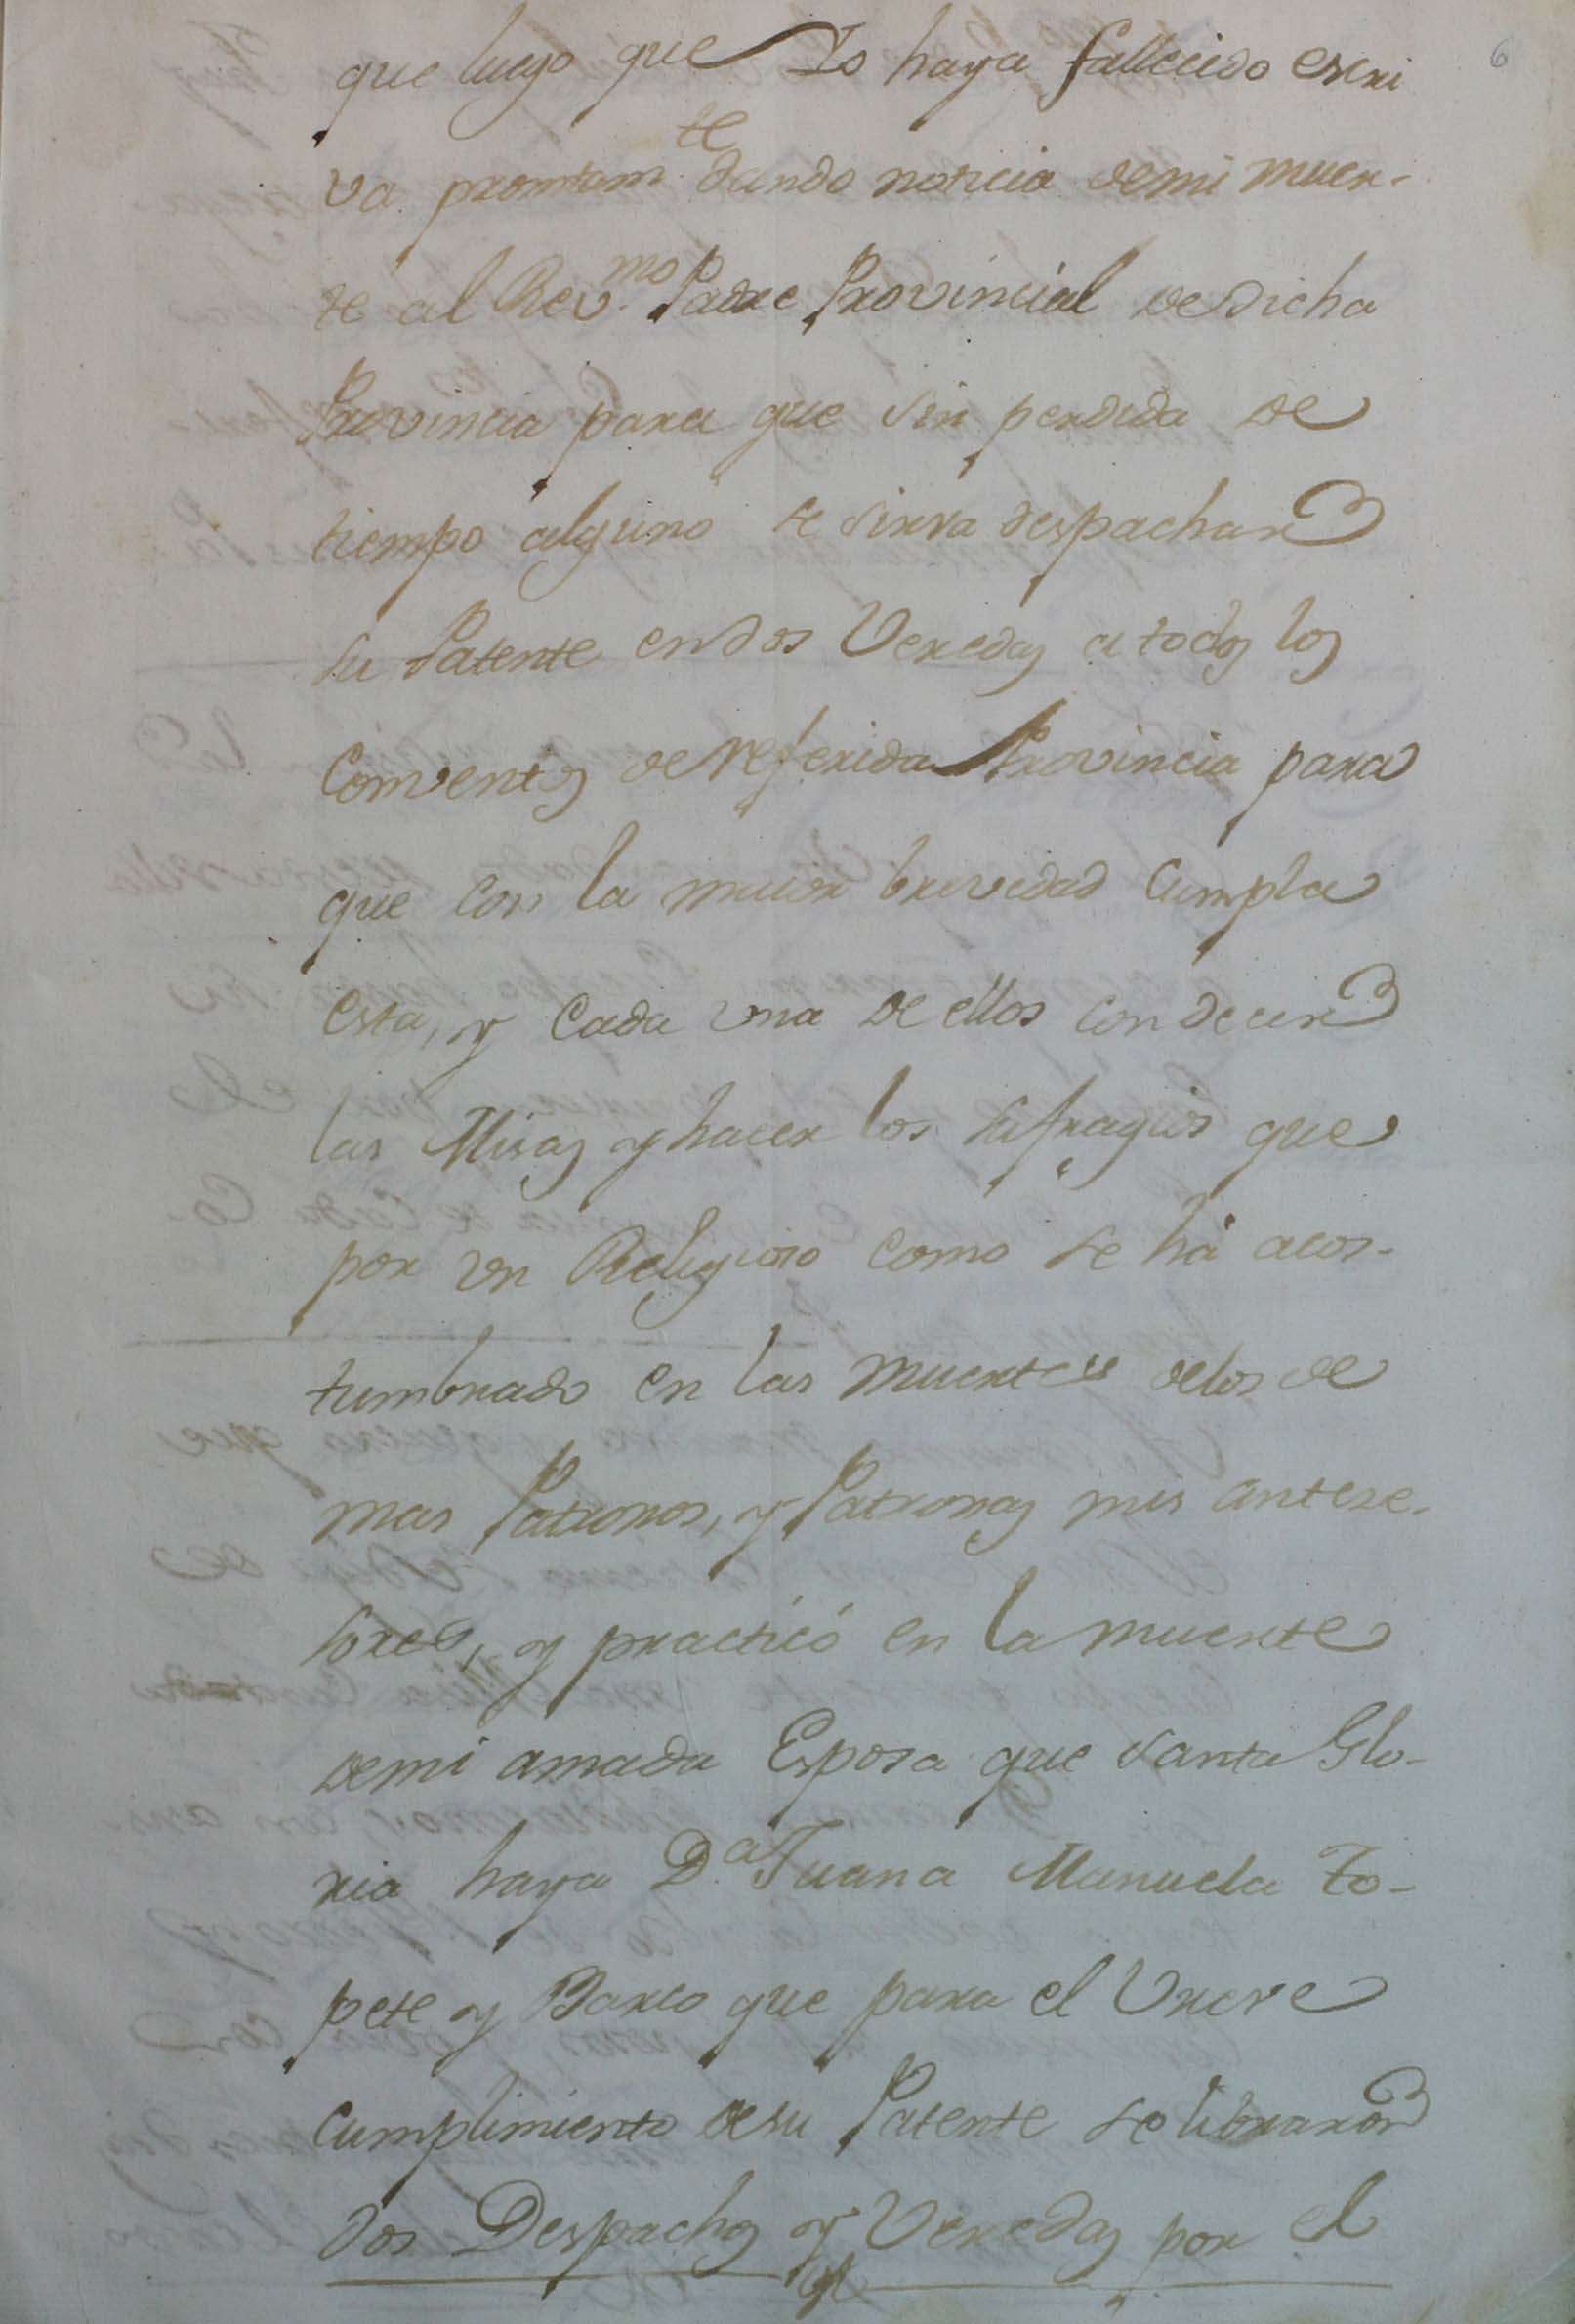 6
que luego que Io haya fallecido escri
va promtam.te dando noticia demi muer-
te al Rev.mo Padre Provincial dedicha
Provincia para que sin perdida de
tiempo alguno se sirva despachar
su Patente endos Veredas a todos los
Conventos de referida Provincia para
que con la maior brevedad cumpla
esta, y Cada una de ellos con decir
las Misas y hacer los sufragios que
por un Religioso como se há acos-
tumbrado en las muertes delos de
mas Patronos, y Patronas mis antese-
sores, y practicó en la muerte
demi amada Esposa que santa Glo-
ria haya D.a Juana Manuela To-
pete y Barco que para el Vreve
cumplimiento desu Patente se libraron
dos Despachos y Veredas por el